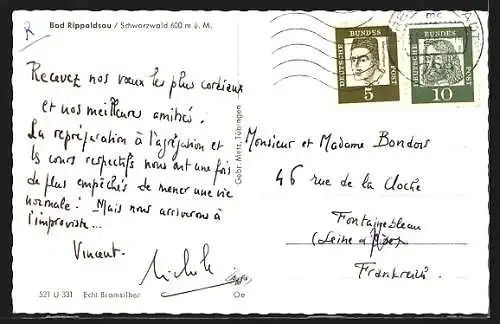 R
Bad Rippoldsau / Schwarzwald 600 m ü. M.
Recevez nos vœux les plus cordiaux
et nos meilleures amitiés.
La repréparation à l'agrégation et
les cours respectifs nous ont une fois
de plus empêchés de mener une vie
normale! Mais nous arriverons à
l'improviste...
Vincent.
Michèle
521 U 331 Echt Bromsilber Oe
Gebr. Metz, Tübingen
DEUTSCHE BUNDES POST
5
DEUTSCHE BUNDES POST
10
Monsieur et Madame Bondois
46 rue de la Cloche
Fontainebleau
(Seine et
Frankreich